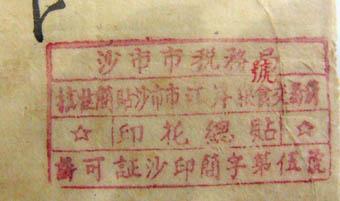 沙市市税務局
核准簡貼沙市市江丰粮食交易號
☆印花總貼☆
許可証沙印簡字第伍號